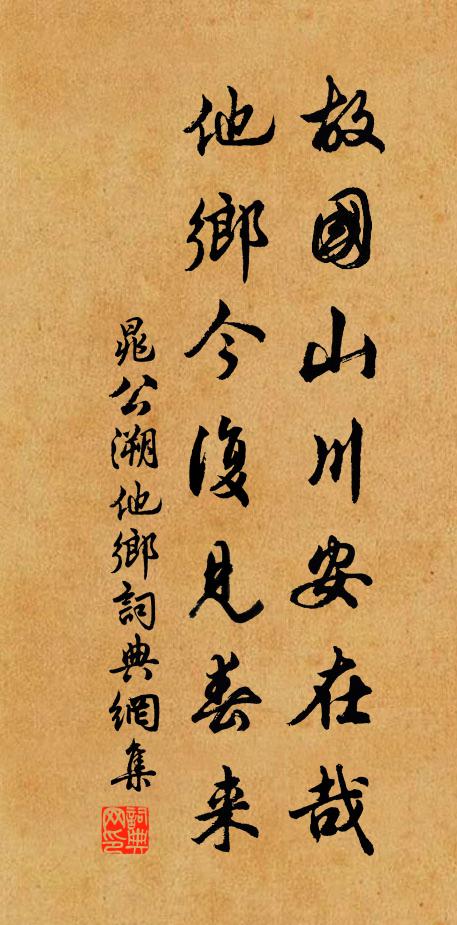 故國山川安在哉
他鄉今復見春来
晁公溯他鄉詞典網集
詞典网印